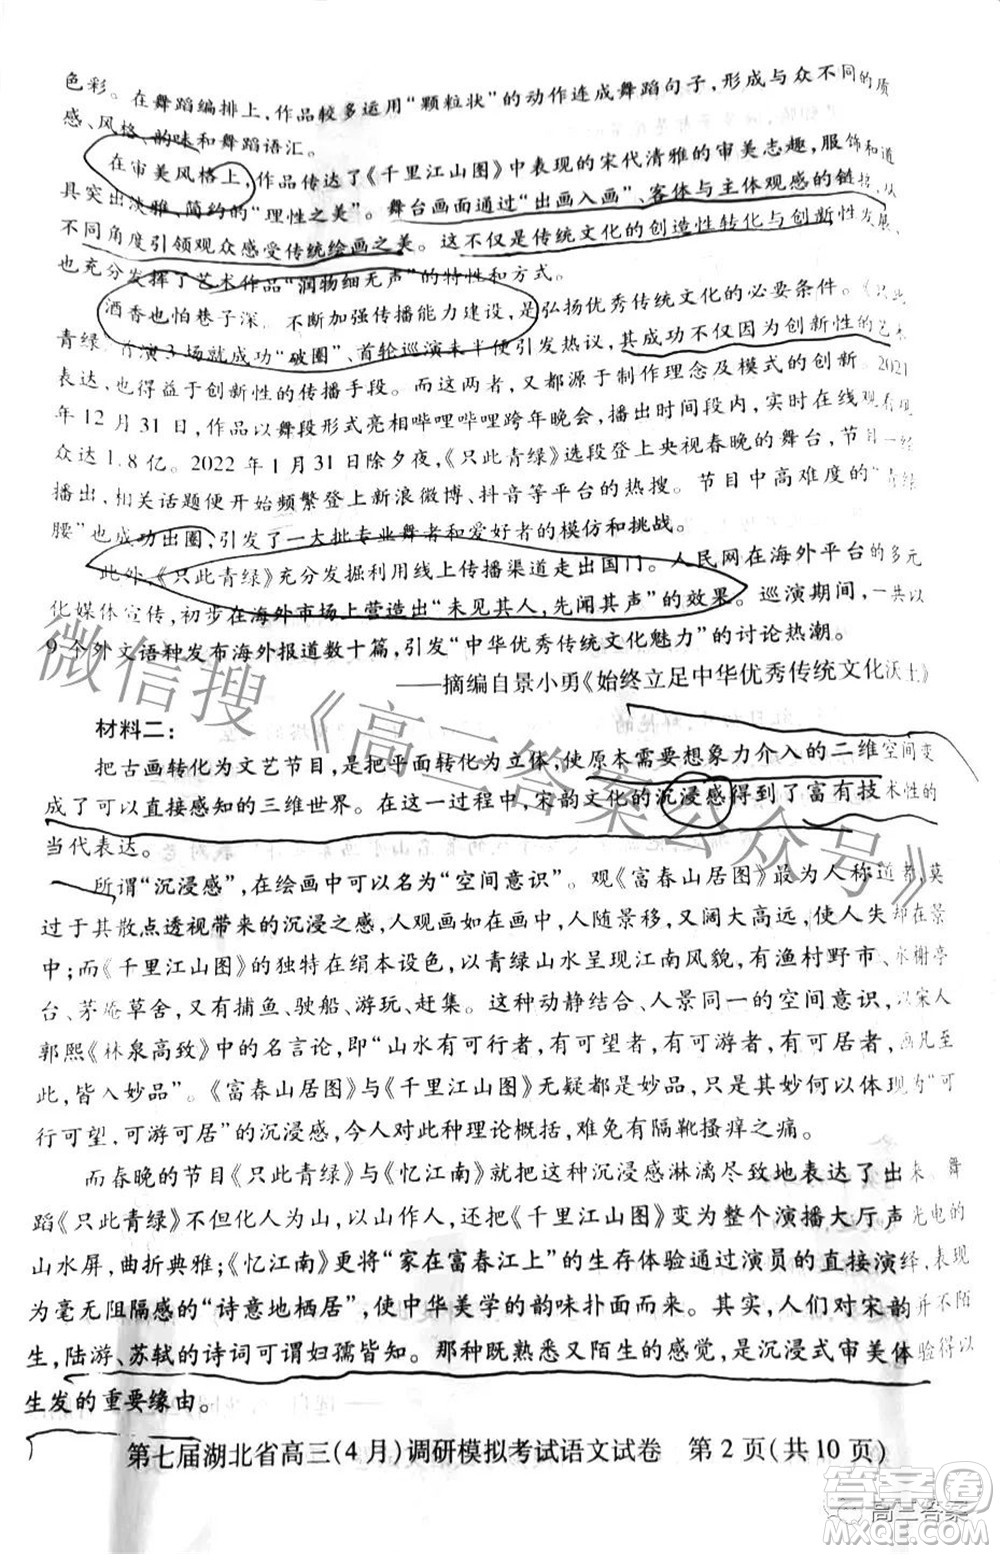 色彩。在舞蹈编排上，作品较多运用“颗粒状”的动作连成舞蹈句子，形成与众不同的质
感、风格、韵味和舞蹈语汇。
在审美风格上，作品传达了《千里江山图》中表现的宋代清雅的审美志趣，服饰和道
具突出淡雅、简约的“理性之美”。舞台画面通过“出画入画”、客体与主体观感的链接，从
不同角度引领观众感受传统绘画之美。这不仅是传统文化的创造性转化与创新性发展，
也充分发挥了艺术作品“润物细无声”的特性和方式。
酒香也怕巷子深。不断加强传播能力建设，是弘扬优秀传统文化的必要条件。《只此
青绿》首演3场就成功“破圈”、首轮巡演未半便引发热议，其成功不仅因为创新性的艺术
表达，也得益于创新性的传播手段。而这两者，又都源于制作理念及模式的创新。2021
年12月31日，作品以舞段形式亮相哔哩哔哩跨年晚会，播出时间段内，实时在线观看观
众达1.8亿。2022年1月31日除夕夜，《只此青绿》选段登上央视春晚的舞台，节目一经
播出，相关话题便开始频繁登上新浪微博、抖音等平台的热搜。节目中高难度的“青绿
腰”也成功出圈，引发了一大批专业舞者和爱好者的模仿和挑战。
此外，《只此青绿》充分发掘利用线上传播渠道走出国门。人民网在海外平台的多元
化媒体宣传，初步在海外市场上营造出“未见其人，先闻其声”的效果。巡演期间，一共以
9个外文语种发布海外报道数十篇，引发“中华优秀传统文化魅力”的讨论热潮。
——摘编自景小勇《始终立足中华优秀传统文化沃土》
材料二：
把古画转化为文艺节目，是把平面转化为立体，使原本需要想象力介入的二维空间变
成了可以直接感知的三维世界。在这一过程中，宋韵文化的沉浸感得到了富有技术性的
当代表达。
所谓“沉浸感”，在绘画中可以名为“空间意识”。观《富春山居图》最为人称道都莫
过于其散点透视带来的沉浸之感，人观画如在画中，人随景移，又阔大高远，使人失却在景
中；而《千里江山图》的独特在绢本设色，以青绿山水呈现江南风貌，有渔村野市、水榭亭
台、茅庵草舍，又有捕鱼、驶船、游玩、赶集。这种动静结合、人景同一的空间意识，以宋人
郭熙《林泉高致》中的名言论，即“山水有可行者，有可望者，有可游者，有可居者，画凡至
此，皆入妙品”。《富春山居图》与《千里江山图》无疑都是妙品，但其妙何以体现为“可
行可望，可游可居”的沉浸感，今人对此种理论概括，难免有隔靴搔痒之痛。
而春晚的节目《只此青绿》与《忆江南》就把这种沉浸感淋漓尽致地表达了出来，舞
蹈《只此青绿》不但化人为山，以山作人，还把《千里江山图》变为整个演播大厅声光电的
山水屏，曲折典雅；《忆江南》更将“家在富春江上”的生存体验通过演员的直接演绎，表现
为毫无阻隔感的“诗意地栖居”，使中华美学的韵味扑面而来。其实，人们对宋韵并不陌
生，陆游、苏轼的诗词可谓妇孺皆知。那种既熟悉又陌生的感觉，是沉浸式审美体验得以
生发的重要缘由。
第七届湖北省高三(4月)调研模拟考试语文试卷 第2页(共10页)
微信搜《高三答案公众号》
高三答案
答案圈
MXQE.COM